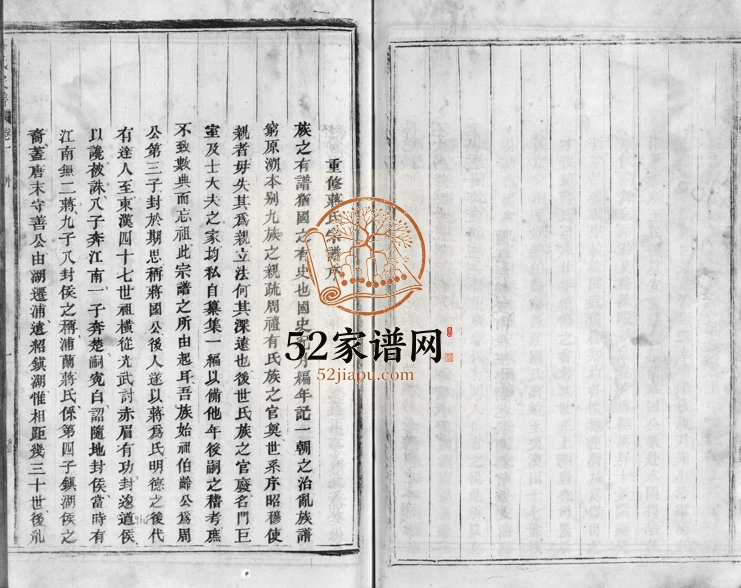 重修蔣氏宗譜序
族之有譜猶國之有史也國史編年記一朝之治亂族譜
窮原溯本别九族之親疏周禮有氏族之官奠世系序昭穆使
親者毋失其爲親立法何其深遠也後世氏族之官廢名門巨
室及士大夫之家均私自纂集一編以備他年後嗣之稽考庶
不致數典而忘祖此宗譜之所由起耳吾族始祖伯齡公爲周
公第三子封於期思稱蔣國公後人遂以蔣爲氏明德之後代
有達人至東漢四十七世祖橫從光武討赤眉有功封逡遒侯
以讒被誅八子奔江南一子奔楚嗣寃白詔隨地封侯當時有
江南無二蔣九子八封侯之稱浦蘭蔣氏係第四子鎮湖侯之
裔蓋唐末守善公由湖遷浦遠紹鎮湖惟相距幾三十世後亂
卷一
一
52家谱网
52jiapu.com